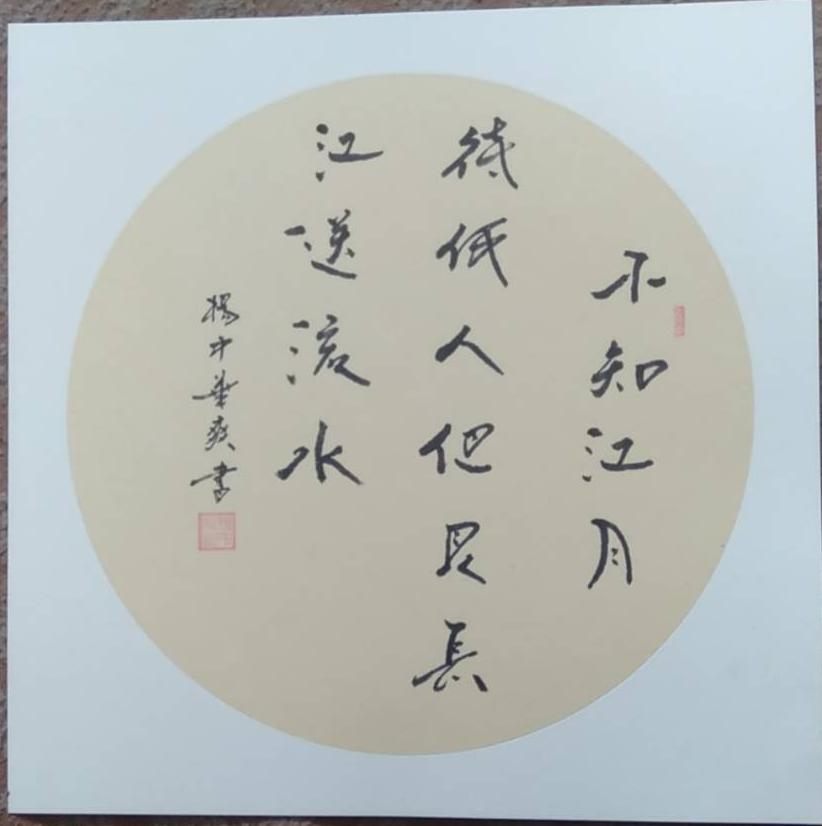 不知江月
待低人但見長
江送流水
楊中華爽書